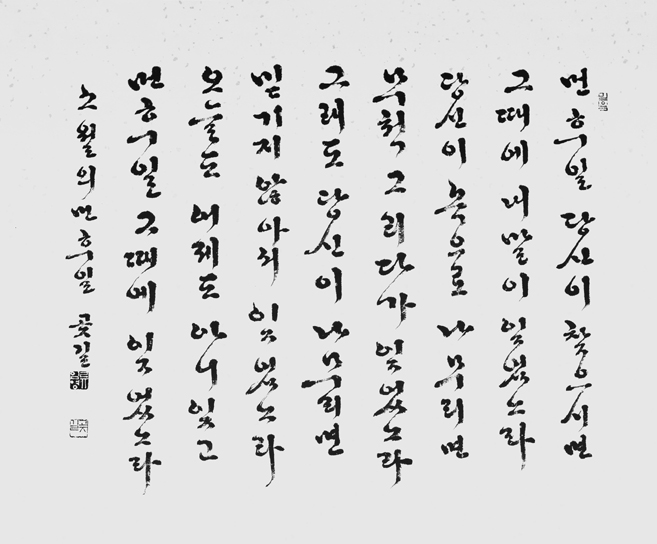 먼 후일 당신이 찾으시면
그때에 내 말이 잊었노라
당신이 속으로 나무리면
무척 그리다가 잊었노라
그래도 당신이 나무리면
믿기지 않아서 잊었노라
오늘도 어제도 아니 잊고
먼 후일 그때에 잊었노라
소월의 먼 후일